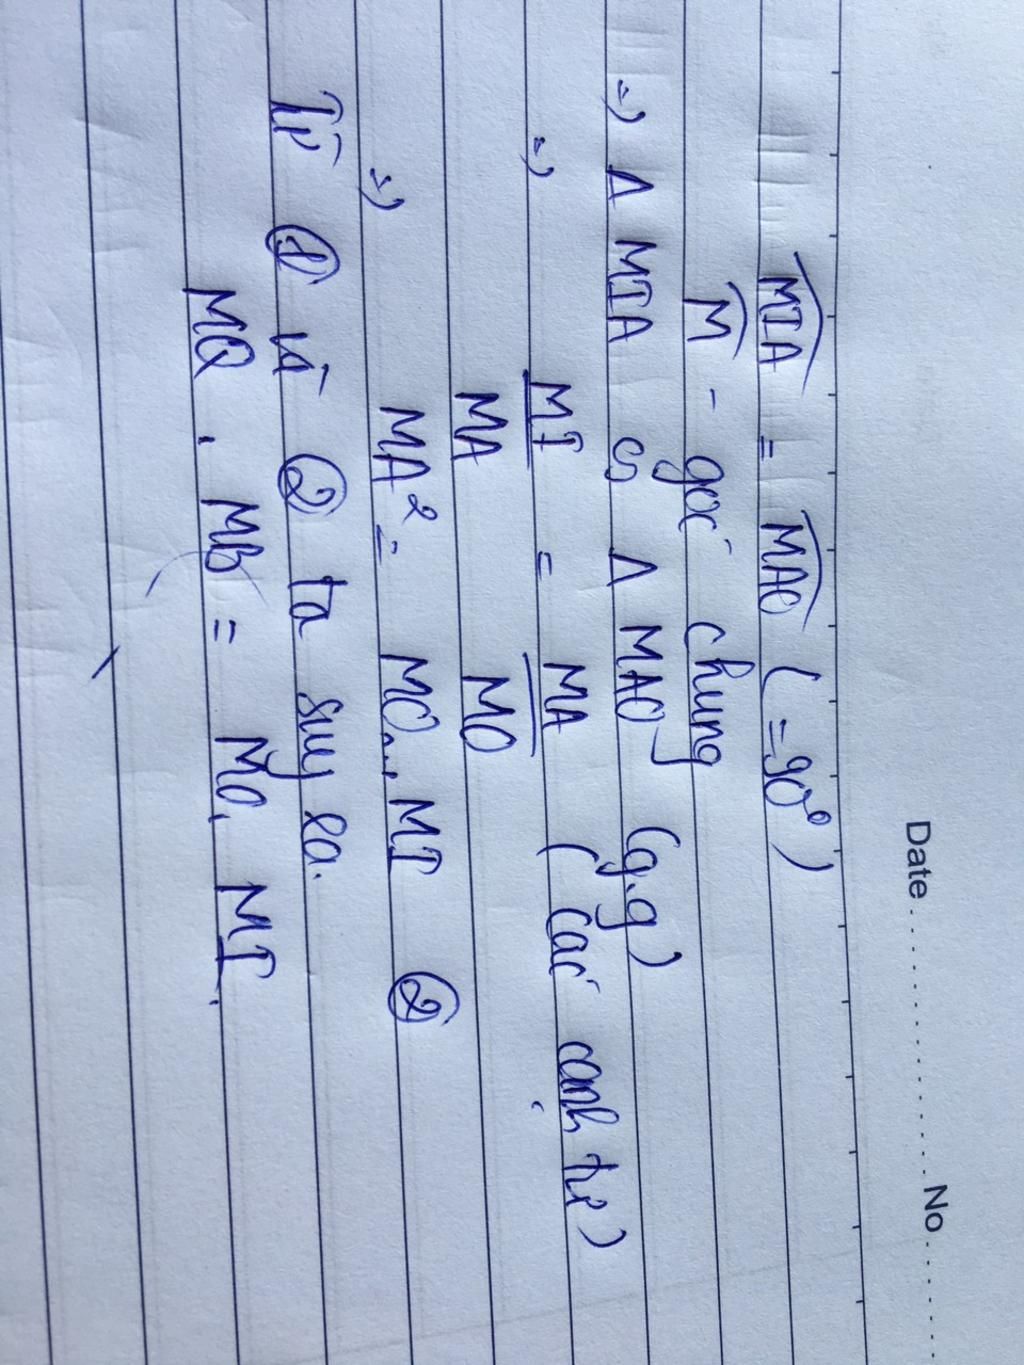 Date ........................ No ............
MIA = MAO (=90°)
M - góc chung
=) Δ MIA ∽ Δ MAO (g.g)
=) MI/MA = MA/MO (các cạnh t/ư)
=) MA² = MO . MI ②
Từ ① và ② ta suy ra.
MQ . MB = MO . MI .